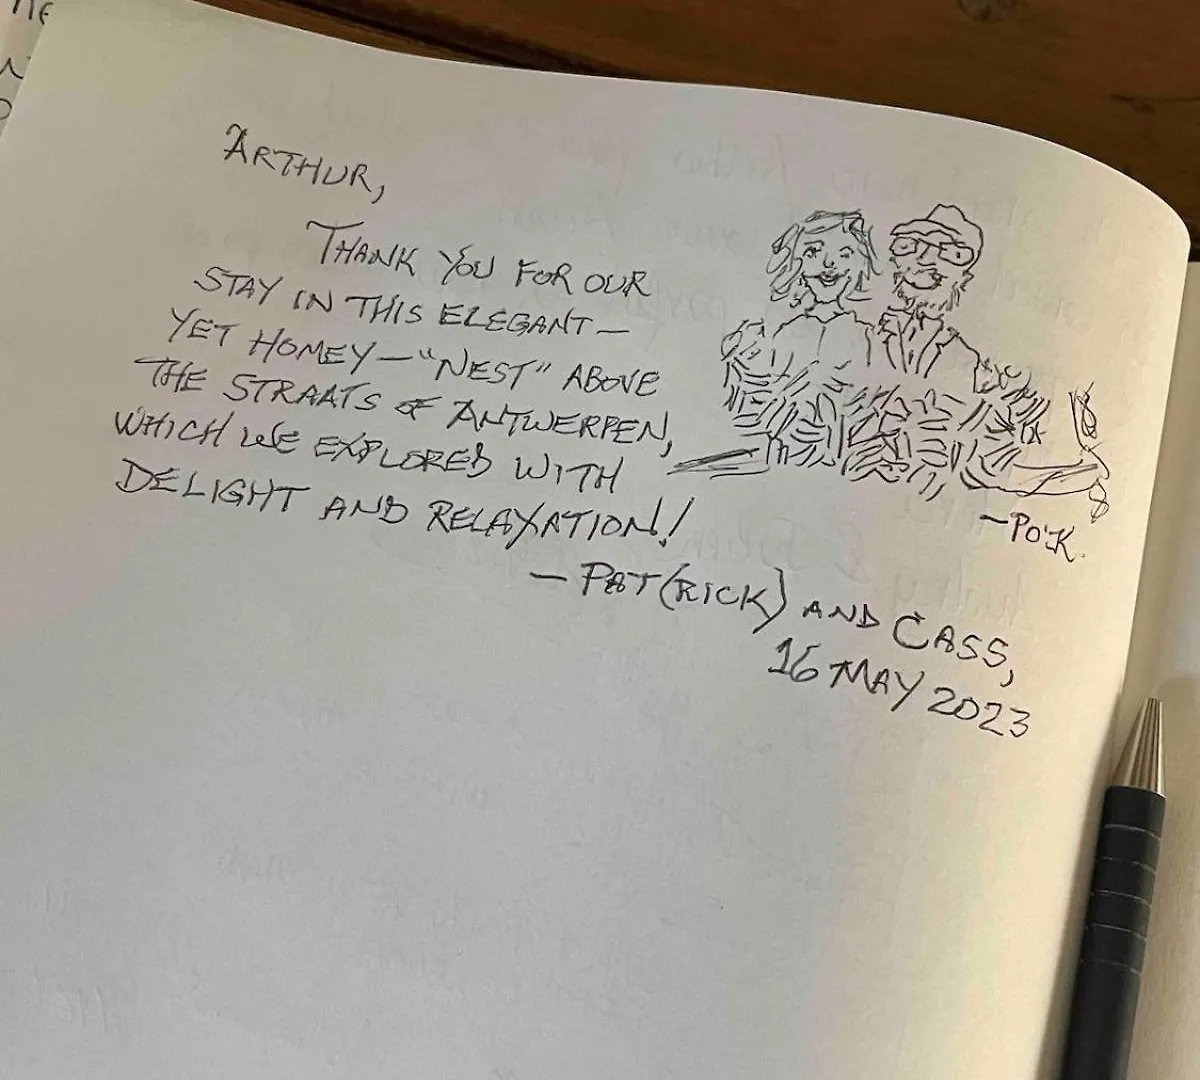 ARTHUR,
THANK YOU FOR OUR
STAY IN THIS ELEGANT—
YET HOMEY—"NEST" ABOVE
THE STRAATS OF ANTWERPEN,
WHICH WE EXPLORED WITH
DELIGHT AND RELAXATION!
— PAT(RICK) AND CASS,
16 MAY 2023
—PO'K.